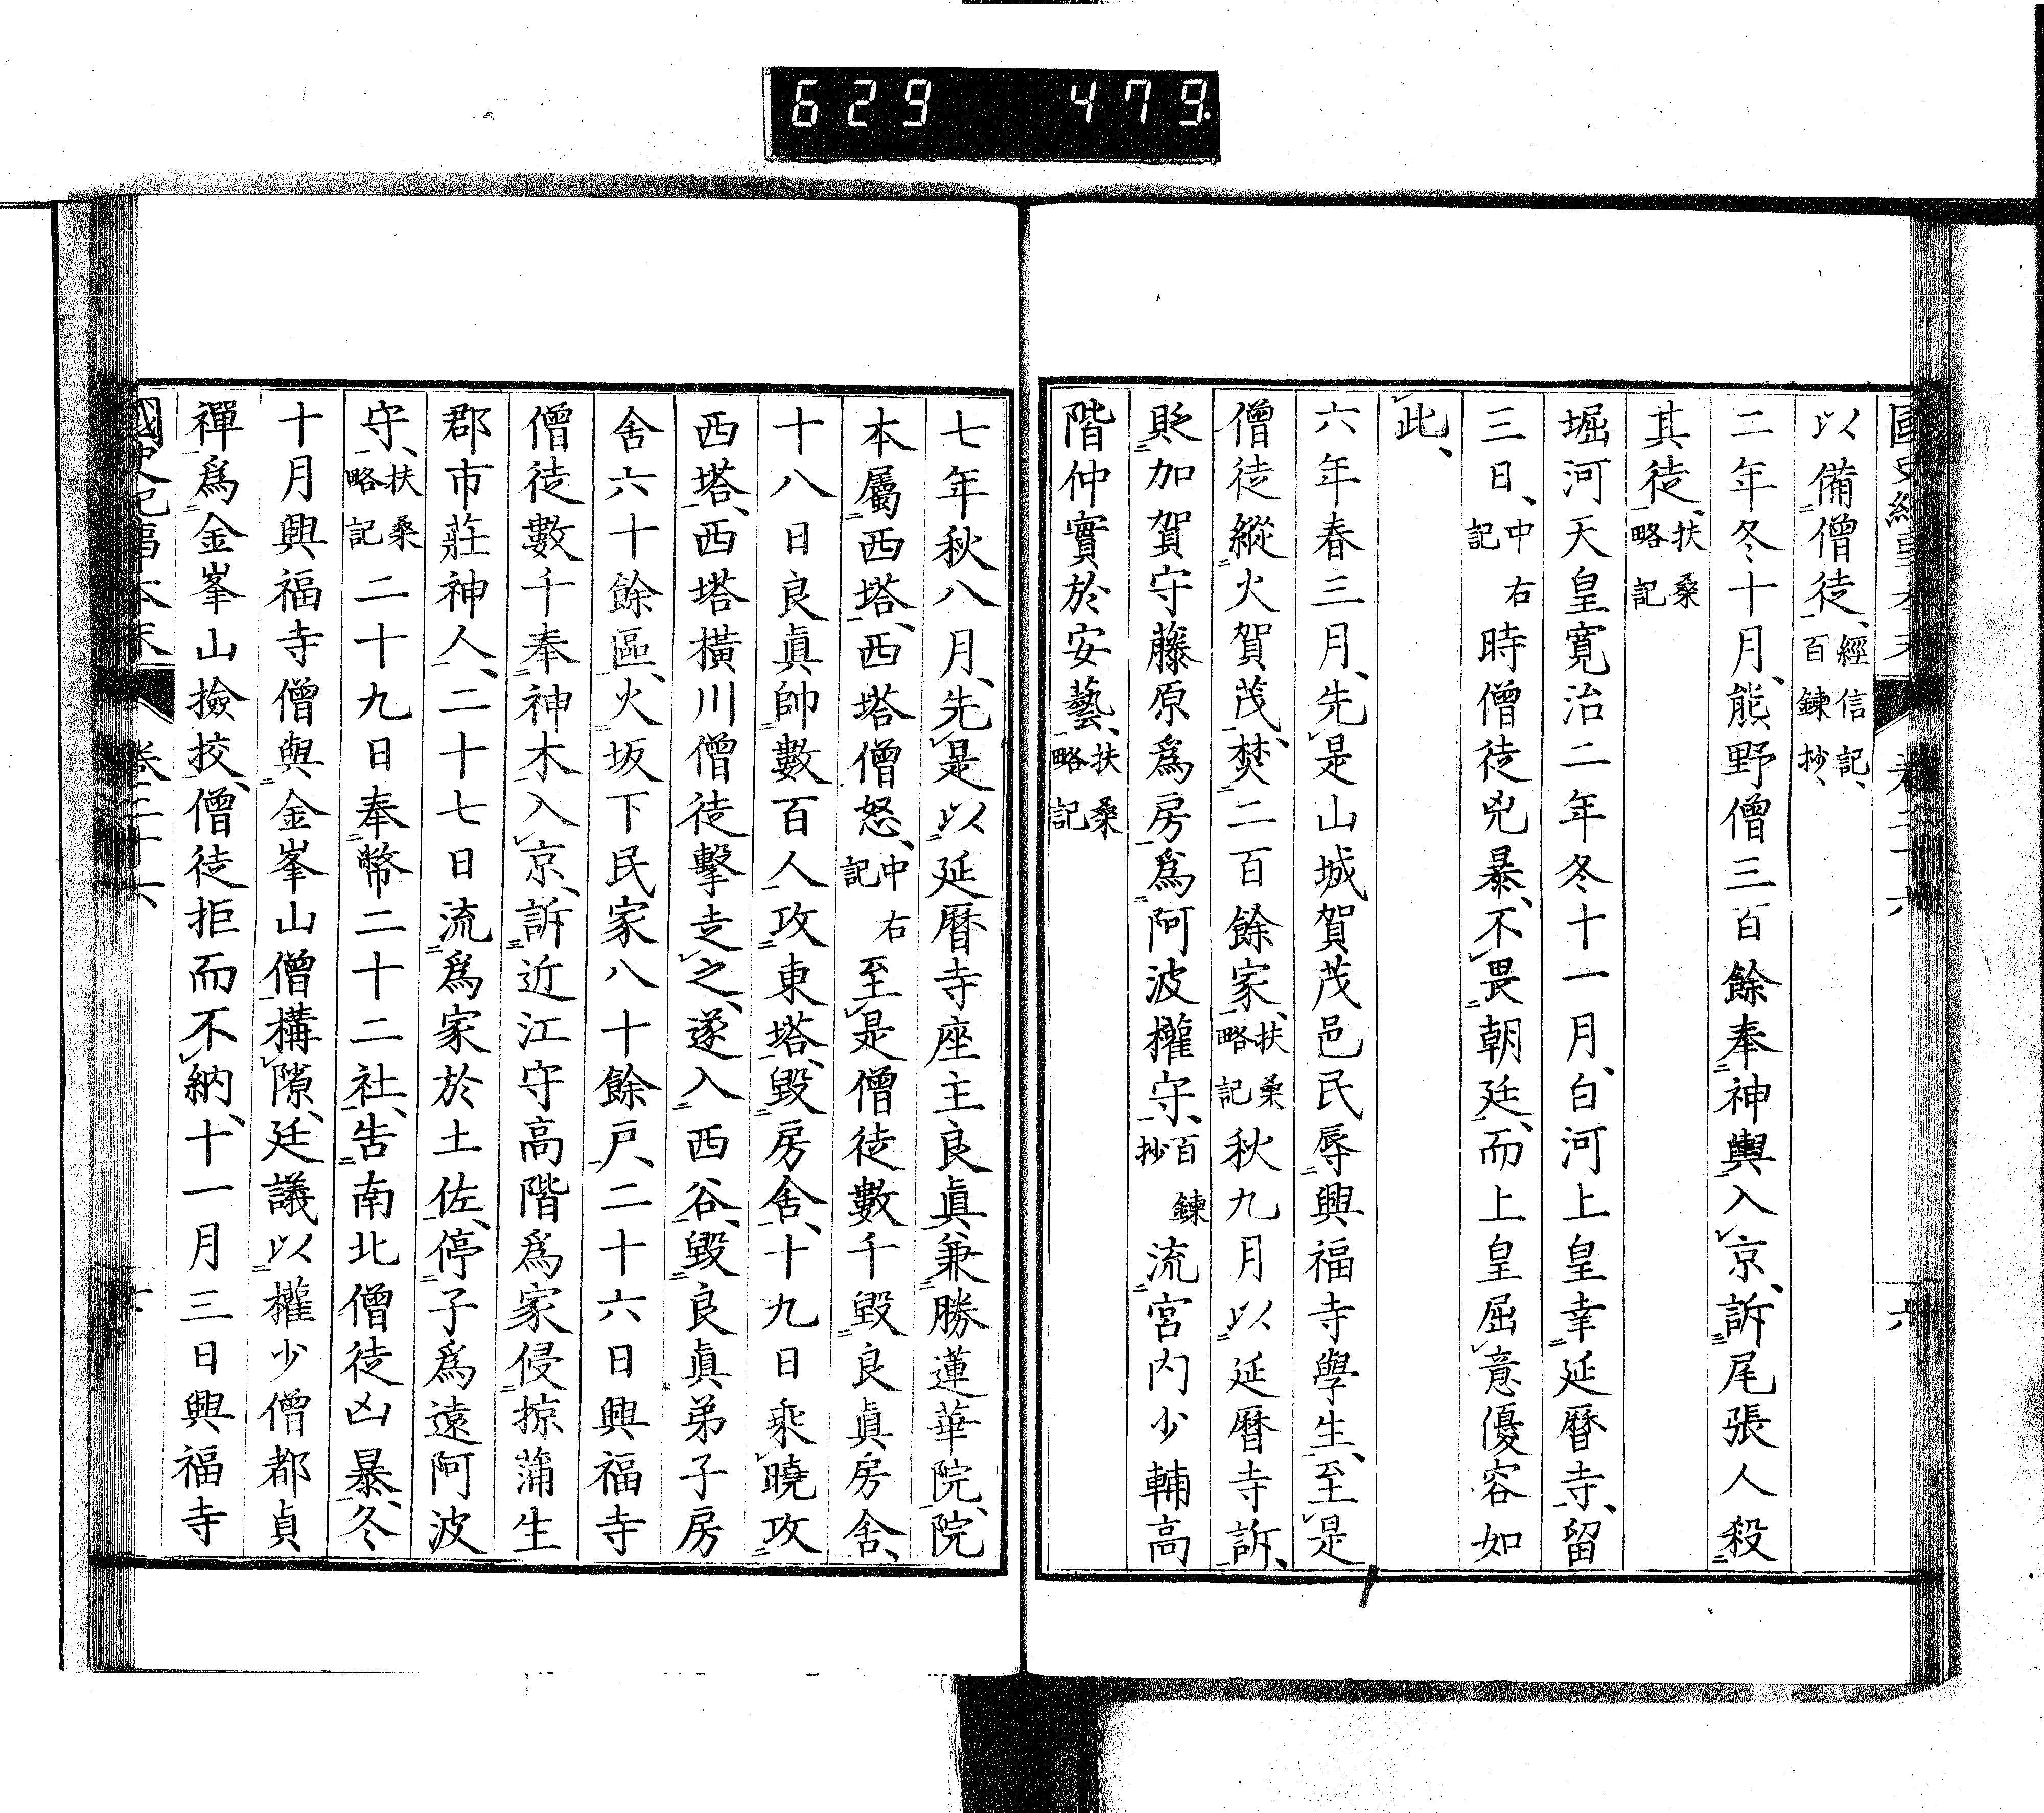 629 479.
以備僧徒、經信記、百鍊抄、
二年冬十月、熊野僧三百餘奉神輿入京、訴尾張人殺
其徒、扶桑略記
堀河天皇寛治二年冬十一月、白河上皇幸延暦寺、留
三日、中右記時僧徒兇暴、不畏朝廷、而上皇屈意優容如
此、
六年春三月、先是山城賀茂邑民辱興福寺學生、至是
僧徒縱火賀茂、焚二百餘家、扶桑略記秋九月以延暦寺訴、
貶加賀守藤原爲房爲阿波權守、百鍊抄流宮内少輔高
階仲實於安藝、扶桑略記
七年秋八月、先是以延暦寺座主良眞兼勝蓮華院、院
本屬西塔、西塔僧怒、中右記至是僧徒數千毀良眞房舍、
十八日良眞帥數百人攻東塔、毀房舍、十九日乘曉攻
西塔、西塔橫川僧徒擊走之、遂入西谷、毀良眞弟子房
舍六十餘區、火坂下民家八十餘戸、二十六日興福寺
僧徒數千奉神木入京、訴近江守高階爲家侵掠蒲生
郡市莊神人、二十七日流爲家於土佐、停子爲遠阿波
守、扶桑略記二十九日奉幣二十二社、告南北僧徒凶暴、冬
十月興福寺僧與金峯山僧構隙、廷議以權少僧都貞
禪爲金峯山撿挍、僧徒拒而不納、十一月三日興福寺
國史紀事本末 卷二十六